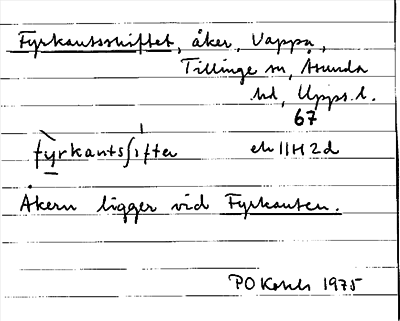 Fyrkantsskiftet, åker, Vappa,
Tillinge sn, Åsunda
hd, Upps. l.
67
fyrkantsʃifte ek 11H2d
Åkern ligger vid Fyrkanten.
PO 1975